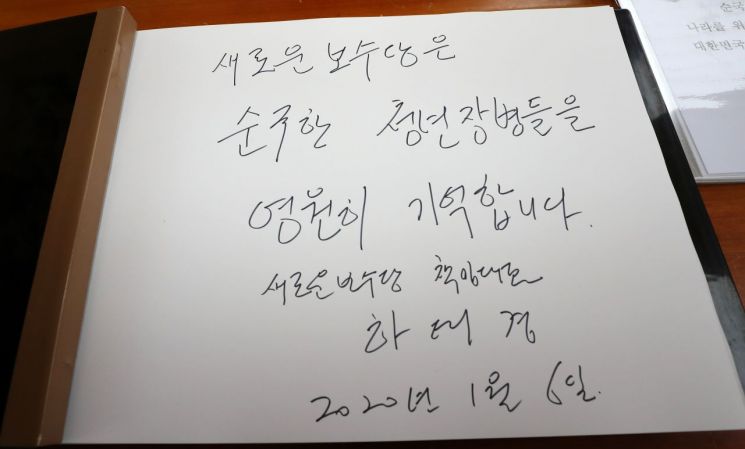 새로운 보수당은
순국한 청년장병들을
영원히 기억합니다.
새로운보수당 책임대표
하 태 경
2020년 1월 6일.
순국
나라를 위
대한민국